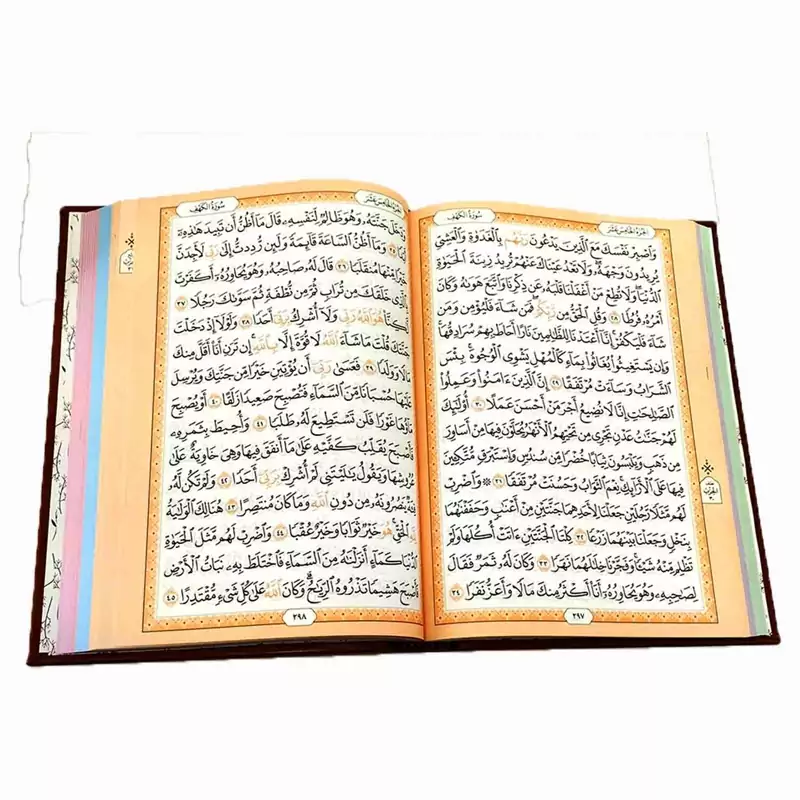 سُورَةُ الكَهْفِ
الجُزْءُ الخَامِسَ عَشَرَ
وَاصْبِرْ نَفْسَكَ مَعَ الَّذِينَ يَدْعُونَ رَبَّهُم بِالْغَدَوٰةِ وَالْعَشِيِّ
يُرِيدُونَ وَجْهَهُۥ وَلَا تَعْدُ عَيْنَاكَ عَنْهُمْ تُرِيدُ زِينَةَ الْحَيَوٰةِ
الدُّنْيَا وَلَا تُطِعْ مَنْ أَغْفَلْنَا قَلْبَهُۥ عَن ذِكْرِنَا وَاتَّبَعَ هَوَىٰهُ وَكَانَ
أَمْرُهُۥ فُرُطًا ٢٨ وَقُلِ الْحَقُّ مِن رَّبِّكُمْ فَمَن شَآءَ فَلْيُؤْمِن وَمَن
شَآءَ فَلْيَكْفُرْ إِنَّآ أَعْتَدْنَا لِلظَّٰلِمِينَ نَارًا أَحَاطَ بِهِمْ سُرَادِقُهَا
وَإِن يَسْتَغِيثُوا۟ يُغَاثُوا۟ بِمَآءٍ كَالْمُهْلِ يَشْوِى الْوُجُوهَ بِئْسَ
الشَّرَابُ وَسَآءَتْ مُرْتَفَقًا ٢٩ إِنَّ الَّذِينَ ءَامَنُوا۟ وَعَمِلُوا۟
الصَّٰلِحَٰتِ إِنَّا لَا نُضِيعُ أَجْرَ مَنْ أَحْسَنَ عَمَلًا ٣٠ أُو۟لَٰٓئِكَ
لَهُمْ جَنَّٰتُ عَدْنٍ تَجْرِى مِن تَحْتِهِمُ الْأَنْهَٰرُ يُحَلَّوْنَ فِيهَا مِنْ أَسَاوِرَ
مِن ذَهَبٍ وَيَلْبَسُونَ ثِيَابًا خُضْرًا مِّن سُندُسٍ وَإِسْتَبْرَقٍ مُّتَّكِـِٔينَ
فِيهَا عَلَى الْأَرَآئِكِ نِعْمَ الثَّوَابُ وَحَسُنَتْ مُرْتَفَقًا ٣١ ۞ وَاضْرِبْ
لَهُم مَّثَلًا رَّجُلَيْنِ جَعَلْنَا لِأَحَدِهِمَا جَنَّتَيْنِ مِنْ أَعْنَٰبٍ وَحَفَفْنَٰهُمَا
بِنَخْلٍ وَجَعَلْنَا بَيْنَهُمَا زَرْعًا ٣٢ كِلْتَا الْجَنَّتَيْنِ ءَاتَتْ أُكُلَهَا وَلَمْ
تَظْلِم مِّنْهُ شَيْـًٔا وَفَجَّرْنَا خِلَٰلَهُمَا نَهَرًا ٣٣ وَكَانَ لَهُۥ ثَمَرٌ فَقَالَ
لِصَٰحِبِهِۦ وَهُوَ يُحَاوِرُهُۥٓ أَنَا۠ أَكْثَرُ مِنكَ مَالًا وَأَعَزُّ نَفَرًا ٣٤
٢٩٧
سُورَةُ الكَهْفِ
وَدَخَلَ جَنَّتَهُۥ وَهُوَ ظَالِمٌ لِّنَفْسِهِۦ قَالَ مَآ أَظُنُّ أَن تَبِيدَ هَٰذِهِۦٓ
أَبَدًا ٣٥ وَمَآ أَظُنُّ السَّاعَةَ قَآئِمَةً وَلَئِن رُّدِدتُّ إِلَىٰ رَبِّى لَأَجِدَنَّ
خَيْرًا مِّنْهَا مُنقَلَبًا ٣٦ قَالَ لَهُۥ صَاحِبُهُۥ وَهُوَ يُحَاوِرُهُۥٓ أَكَفَرْتَ
بِالَّذِى خَلَقَكَ مِن تُرَابٍ ثُمَّ مِن نُّطْفَةٍ ثُمَّ سَوَّىٰكَ رَجُلًا ٣٧
لَّٰكِنَّا۠ هُوَ اللَّهُ رَبِّى وَلَآ أُشْرِكُ بِرَبِّىٓ أَحَدًا ٣٨ وَلَوْلَآ إِذْ دَخَلْتَ
جَنَّتَكَ قُلْتَ مَا شَآءَ اللَّهُ لَا قُوَّةَ إِلَّا بِاللَّهِ إِن تَرَنِ أَنَا۠ أَقَلَّ مِنكَ
مَالًا وَوَلَدًا ٣٩ فَعَسَىٰ رَبِّىٓ أَن يُؤْتِيَنِ خَيْرًا مِّن جَنَّتِكَ وَيُرْسِلَ
عَلَيْهَا حُسْبَانًا مِّنَ السَّمَآءِ فَتُصْبِحَ صَعِيدًا زَلَقًا ٤٠ أَوْ يُصْبِحَ
مَآؤُهَا غَوْرًا فَلَن تَسْتَطِيعَ لَهُۥ طَلَبًا ٤١ وَأُحِيطَ بِثَمَرِهِۦ
فَأَصْبَحَ يُقَلِّبُ كَفَّيْهِ عَلَىٰ مَآ أَنفَقَ فِيهَا وَهِىَ خَاوِيَةٌ عَلَىٰ
عُرُوشِهَا وَيَقُولُ يَٰلَيْتَنِى لَمْ أُشْرِكْ بِرَبِّىٓ أَحَدًا ٤٢ وَلَمْ تَكُن لَّهُۥ
فِئَةٌ يَنصُرُونَهُۥ مِن دُونِ اللَّهِ وَمَا كَانَ مُنتَصِرًا ٤٣ هُنَالِكَ الْوَلَٰيَةُ
لِلَّهِ الْحَقِّ هُوَ خَيْرٌ ثَوَابًا وَخَيْرٌ عُقْبًا ٤٤ وَاضْرِبْ لَهُم مَّثَلَ الْحَيَوٰةِ
الدُّنْيَا كَمَآءٍ أَنزَلْنَٰهُ مِنَ السَّمَآءِ فَاخْتَلَطَ بِهِۦ نَبَاتُ الْأَرْضِ
فَأَصْبَحَ هَشِيمًا تَذْرُوهُ الرِّيَٰحُ وَكَانَ اللَّهُ عَلَىٰ كُلِّ شَىْءٍ مُّقْتَدِرًا ٤٥
٢٩٨